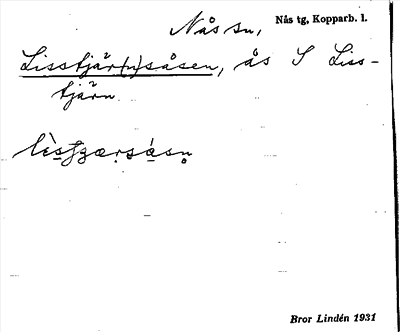 Nås sn, Nås tg, Kopparb. l.
Lisstjär(n)såsen, ås S Liss-
tjärn.
Bror Lindén 1931